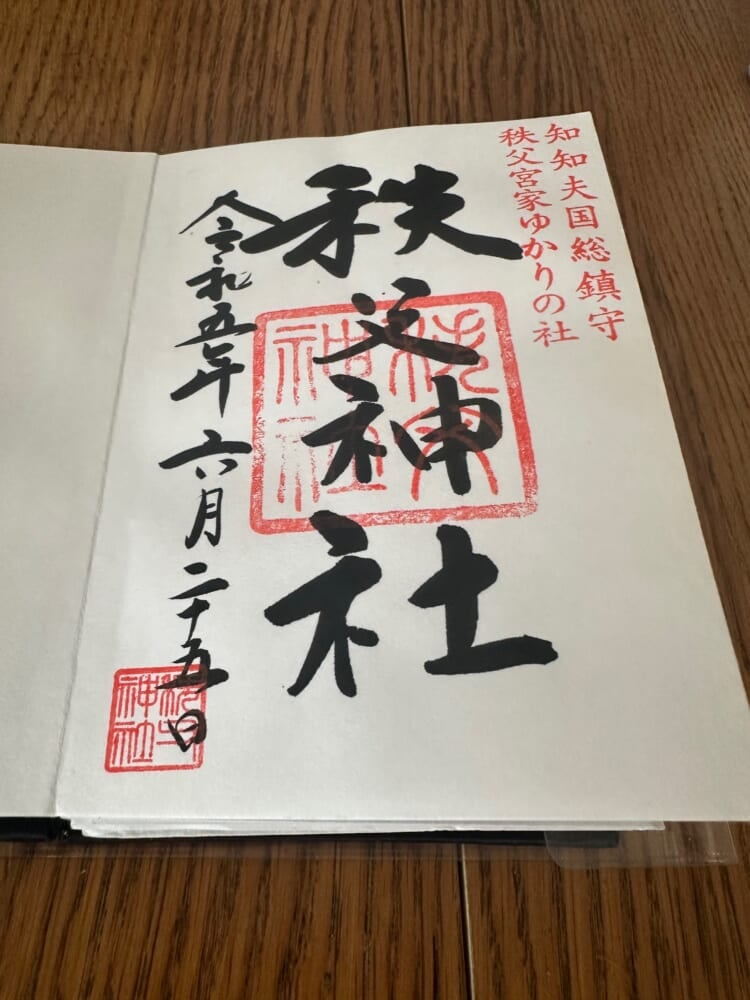 知知夫国総鎮守
秩父宮家ゆかりの社
秩父神社
秩父神社
令和五年六月二十五日
秩父神社